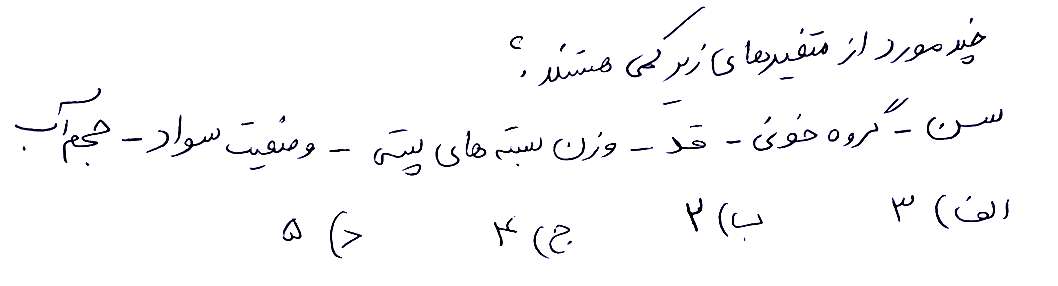 چند مورد از متغیرهای زیر کمی هستند؟
سن - گروه خونی - قد - وزن بسته های پستی - وضعیت سواد - حجم آب
الف) ۳ ب) ۲ ج) ۴ د) ۵